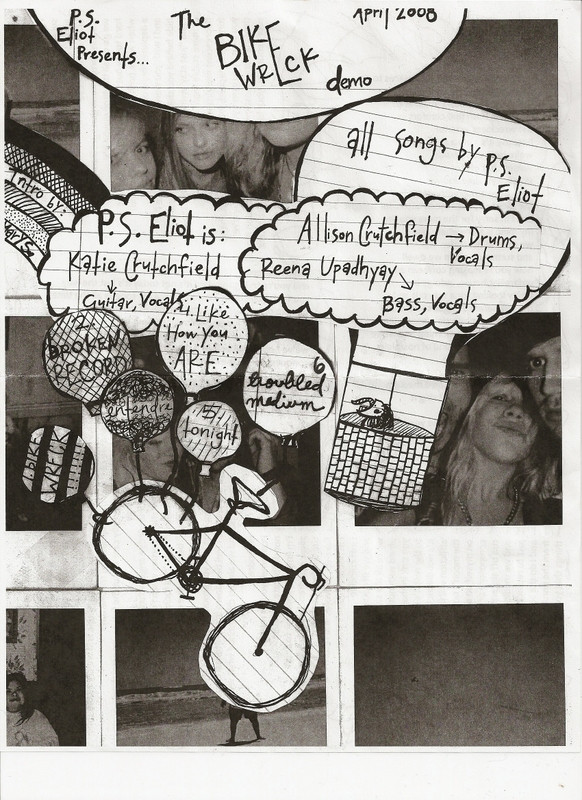 P.S.
Eliot
Presents...
The
BIKE
WRECK
demo
April 2008
all songs by P.S.
Eliot
Intro by:
P.S. Eliot is:
Katie Crutchfield
Guitar, Vocals
Allison Crutchfield → Drums,
Vocals
Reena Upadhyay
Bass, Vocals
2
BROKEN
RECORD
entendre
4 Like
How You
ARE
5
tonight
6
troubled
medium
BIKE
WRECK